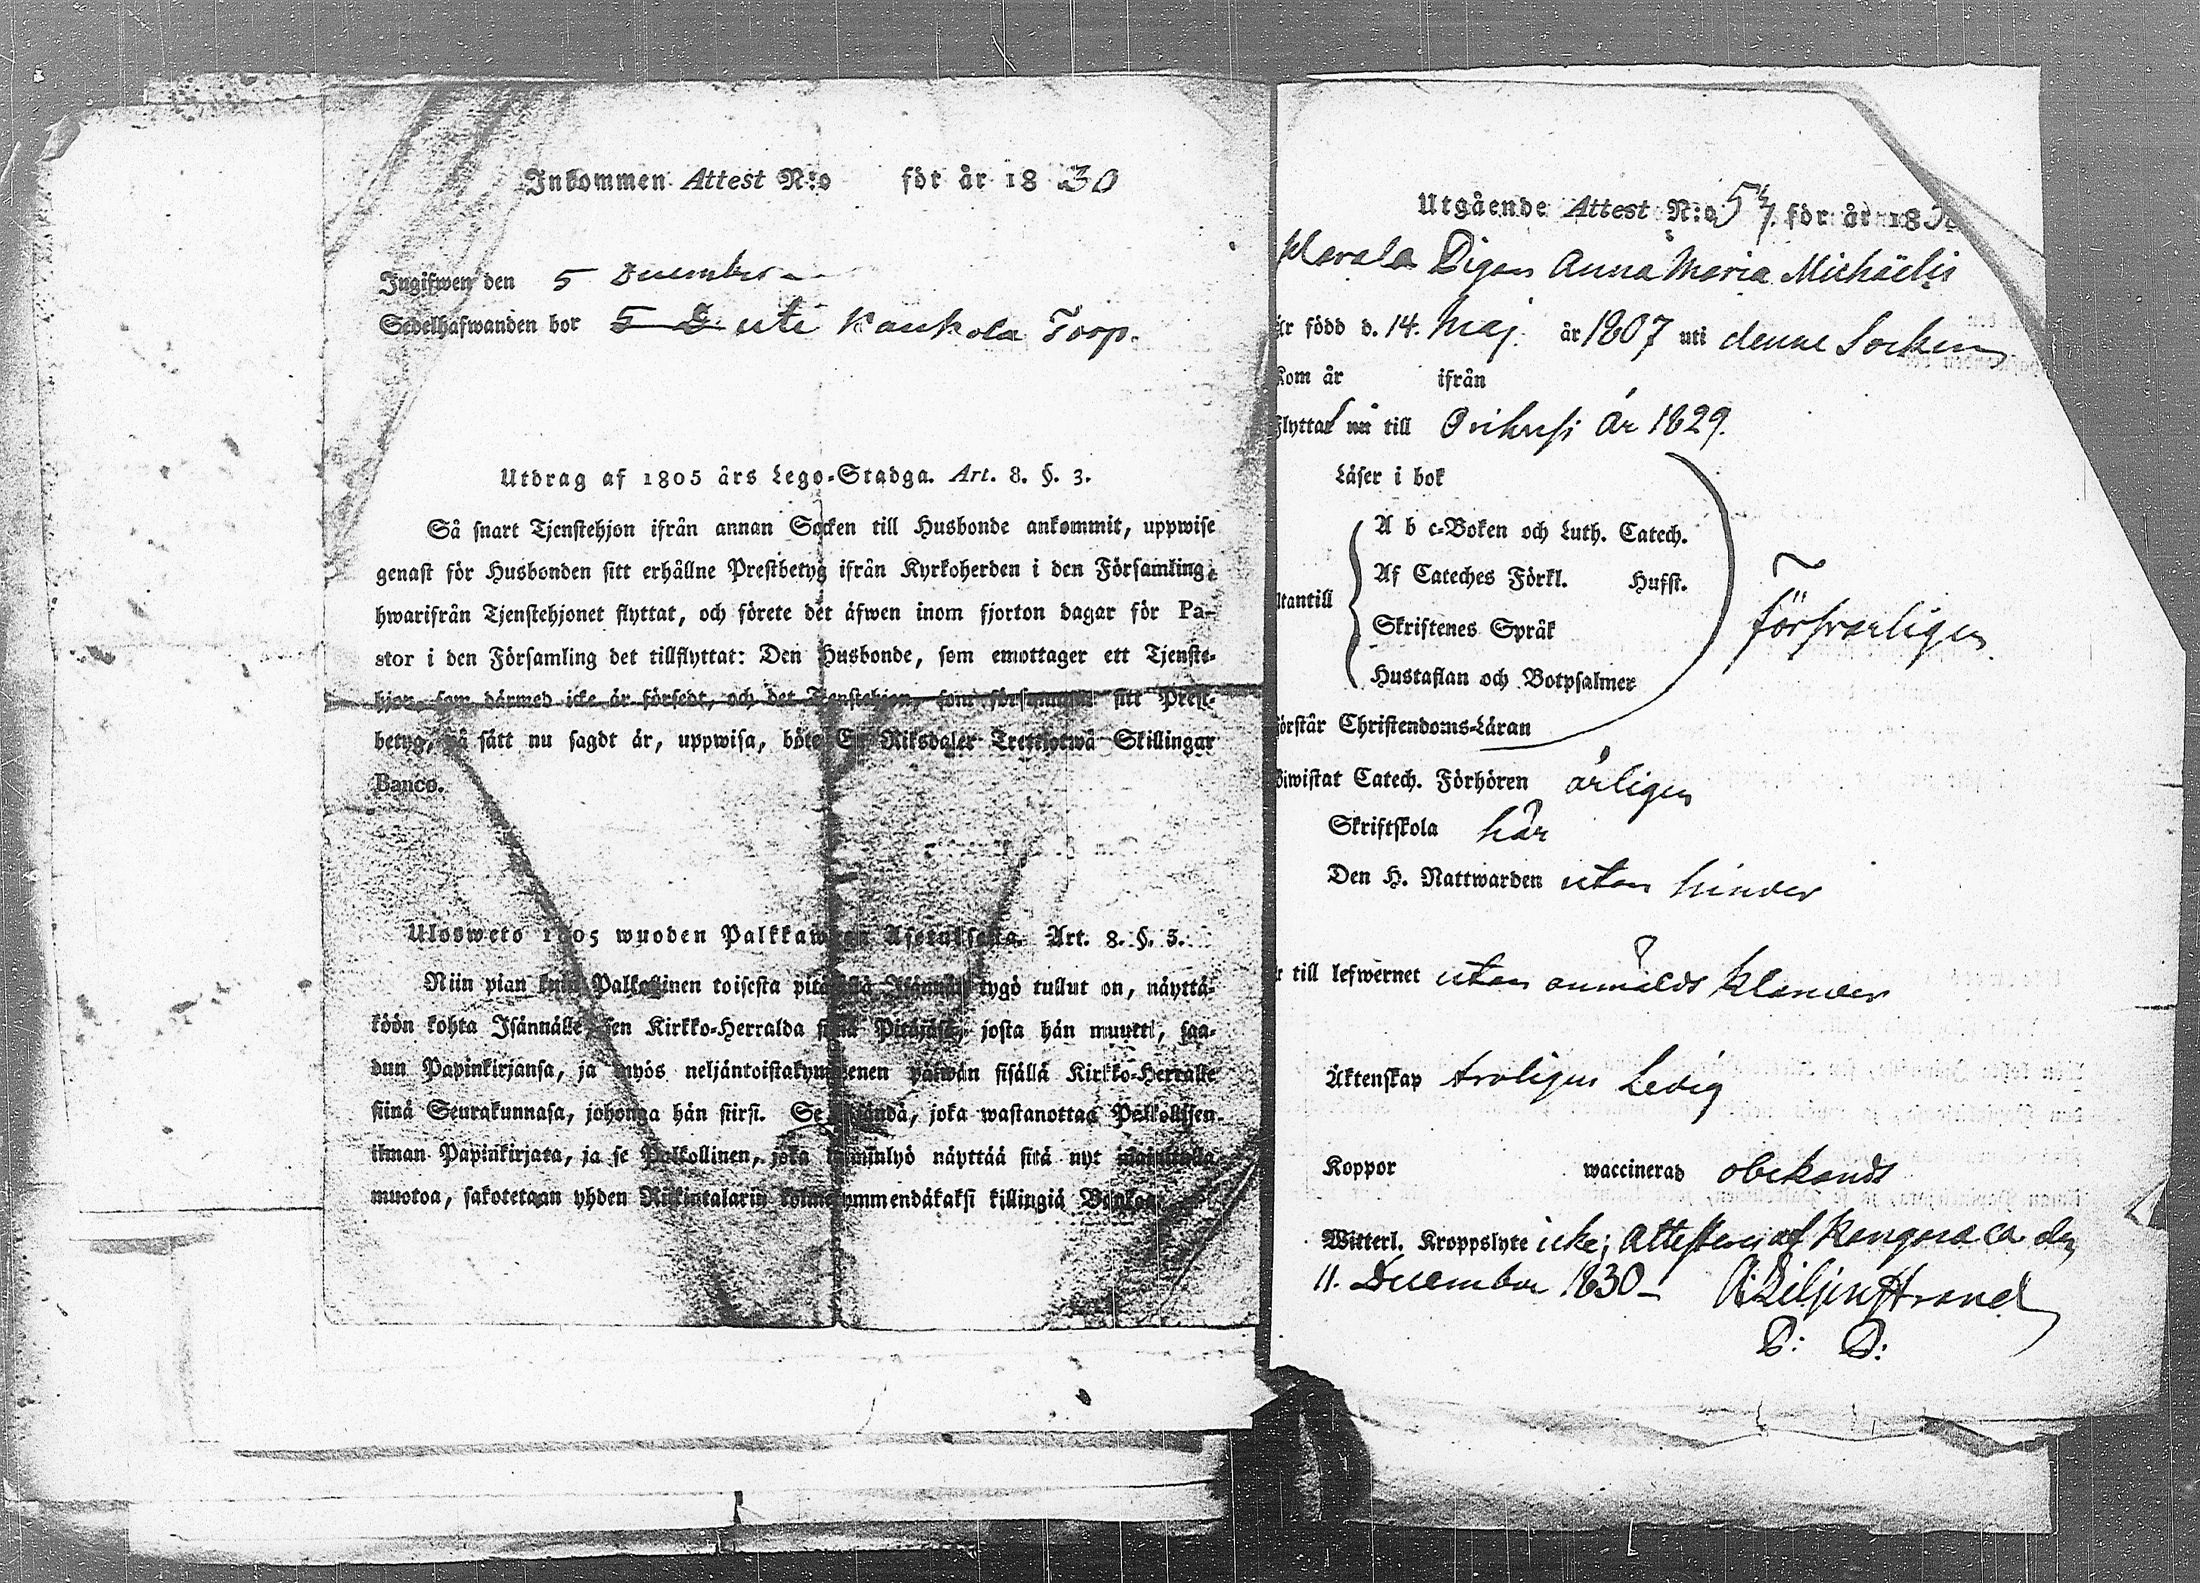 Inkommen Attest N:o för år 1830
Ingifwen den 5 December
Sedelhafwanden bor uti Kaukola Torp.
Utdrag af 1805 års Lego-Stadga. Art. 8. §. 3.
Så snart Tjenstehjon ifrån annan Socken till Husbonde ankommit, uppwise
genast för Husbonden sitt erhållne Prestbetyg ifrån Kyrkoherden i den Församling,
hwarifrån Tjenstehjonet flyttat, och förete det äfwen inom fjorton dagar för Pa-
stor i den Församling det tillflyttat: Den Husbonde, som emottager ett Tjenste-
hjon, som därmed icke är försedt, och det Tjenstehjon, som försummar sitt Prest-
betyg, på sätt nu sagdt är, uppwisa, böte En Riksdaler Trettiotwå Skillingar
Banco.
Ulosweto 1805 wuoden Palkkawäen Asetuksesta. Art. 8. §. 3.
Niin pian kuin Palkollinen toisesta pitäjästä Isännän tygö tullut on, näyttä-
köön kohta Isännälle, sen Kirkko-Herralda siinä Pitäjäsä, josta hän muutti, saa-
dun Papinkirjansa, ja myös neljäntoistakymmenen päiwän sisällä Kirkko-Herralle
siinä Seurakunnasa, johonga hän siirsi. Se Isändä, joka wastanottaa Palkollisen
ilman Papinkirjata, ja se Palkollinen, joka laiminlyö näyttää sitä nyt mainitulla
muotoa, sakotetaan yhden Riikintalarin kolmekymmendäkaksi killingiä Bankoa.
Utgående Attest N:o 57. för år 1830
Pigan Anna Maria Michaëlis
är född d. 14. Maj. år 1807 uti denne Socken
Kom år ifrån
Flyttat till Orihvesi år 1829.
Läser i bok
A b c-Boken och Luth. Catech.
Af Cateches Förkl. Husst.
Utantill
Skriftenes Språk förswarligen
Hustaflan och Botpsalmer
Förstår Christendoms-Läran
Biwistat Catech. Förhören årligen
Skriftskola här
Den H. Nattwarden utan hinder
till lefwernet utan anmäldt klander
Äktenskap troligen Ledig
Koppor waccinerad obekandt
Witterl. Kroppslyte icke; Attesteras af Kangasala den
11. December 1830 A: Liljenstrand